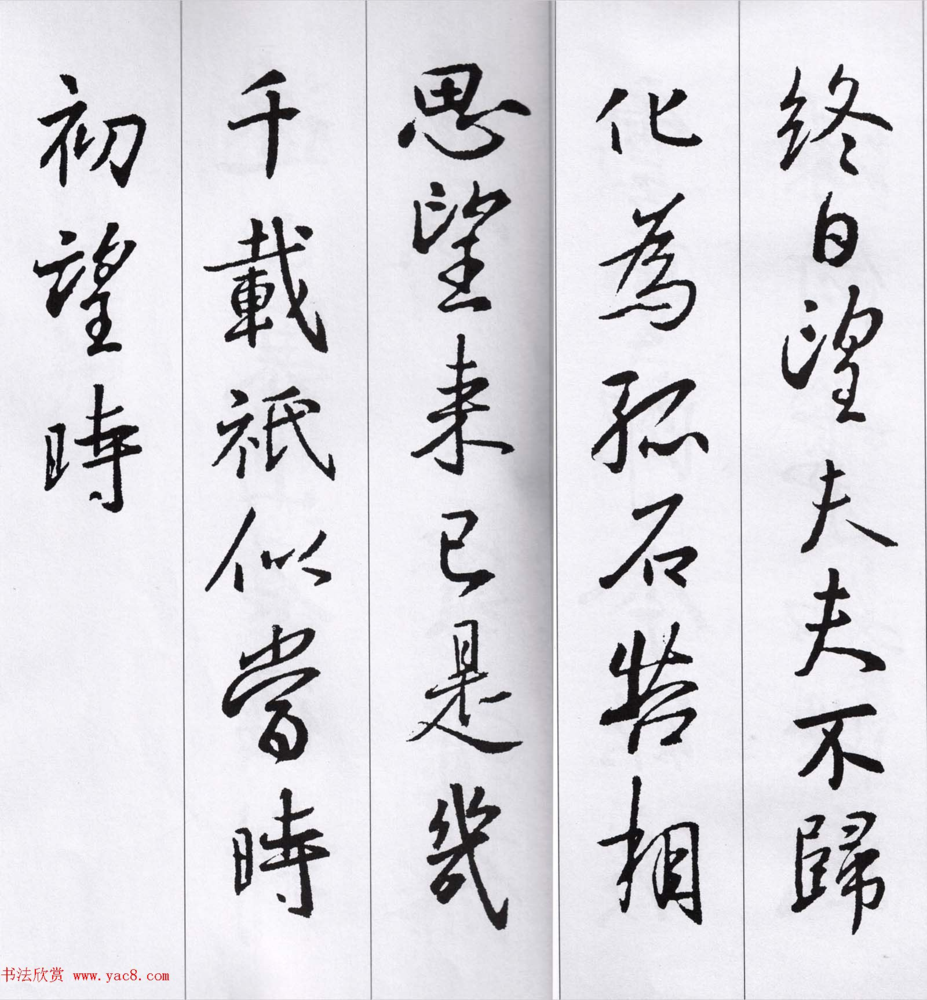 終日望夫夫不歸
化為孤石苦相
思望来已是幾
千載祇似當時
初望時
书法欣赏 www.yac8.com